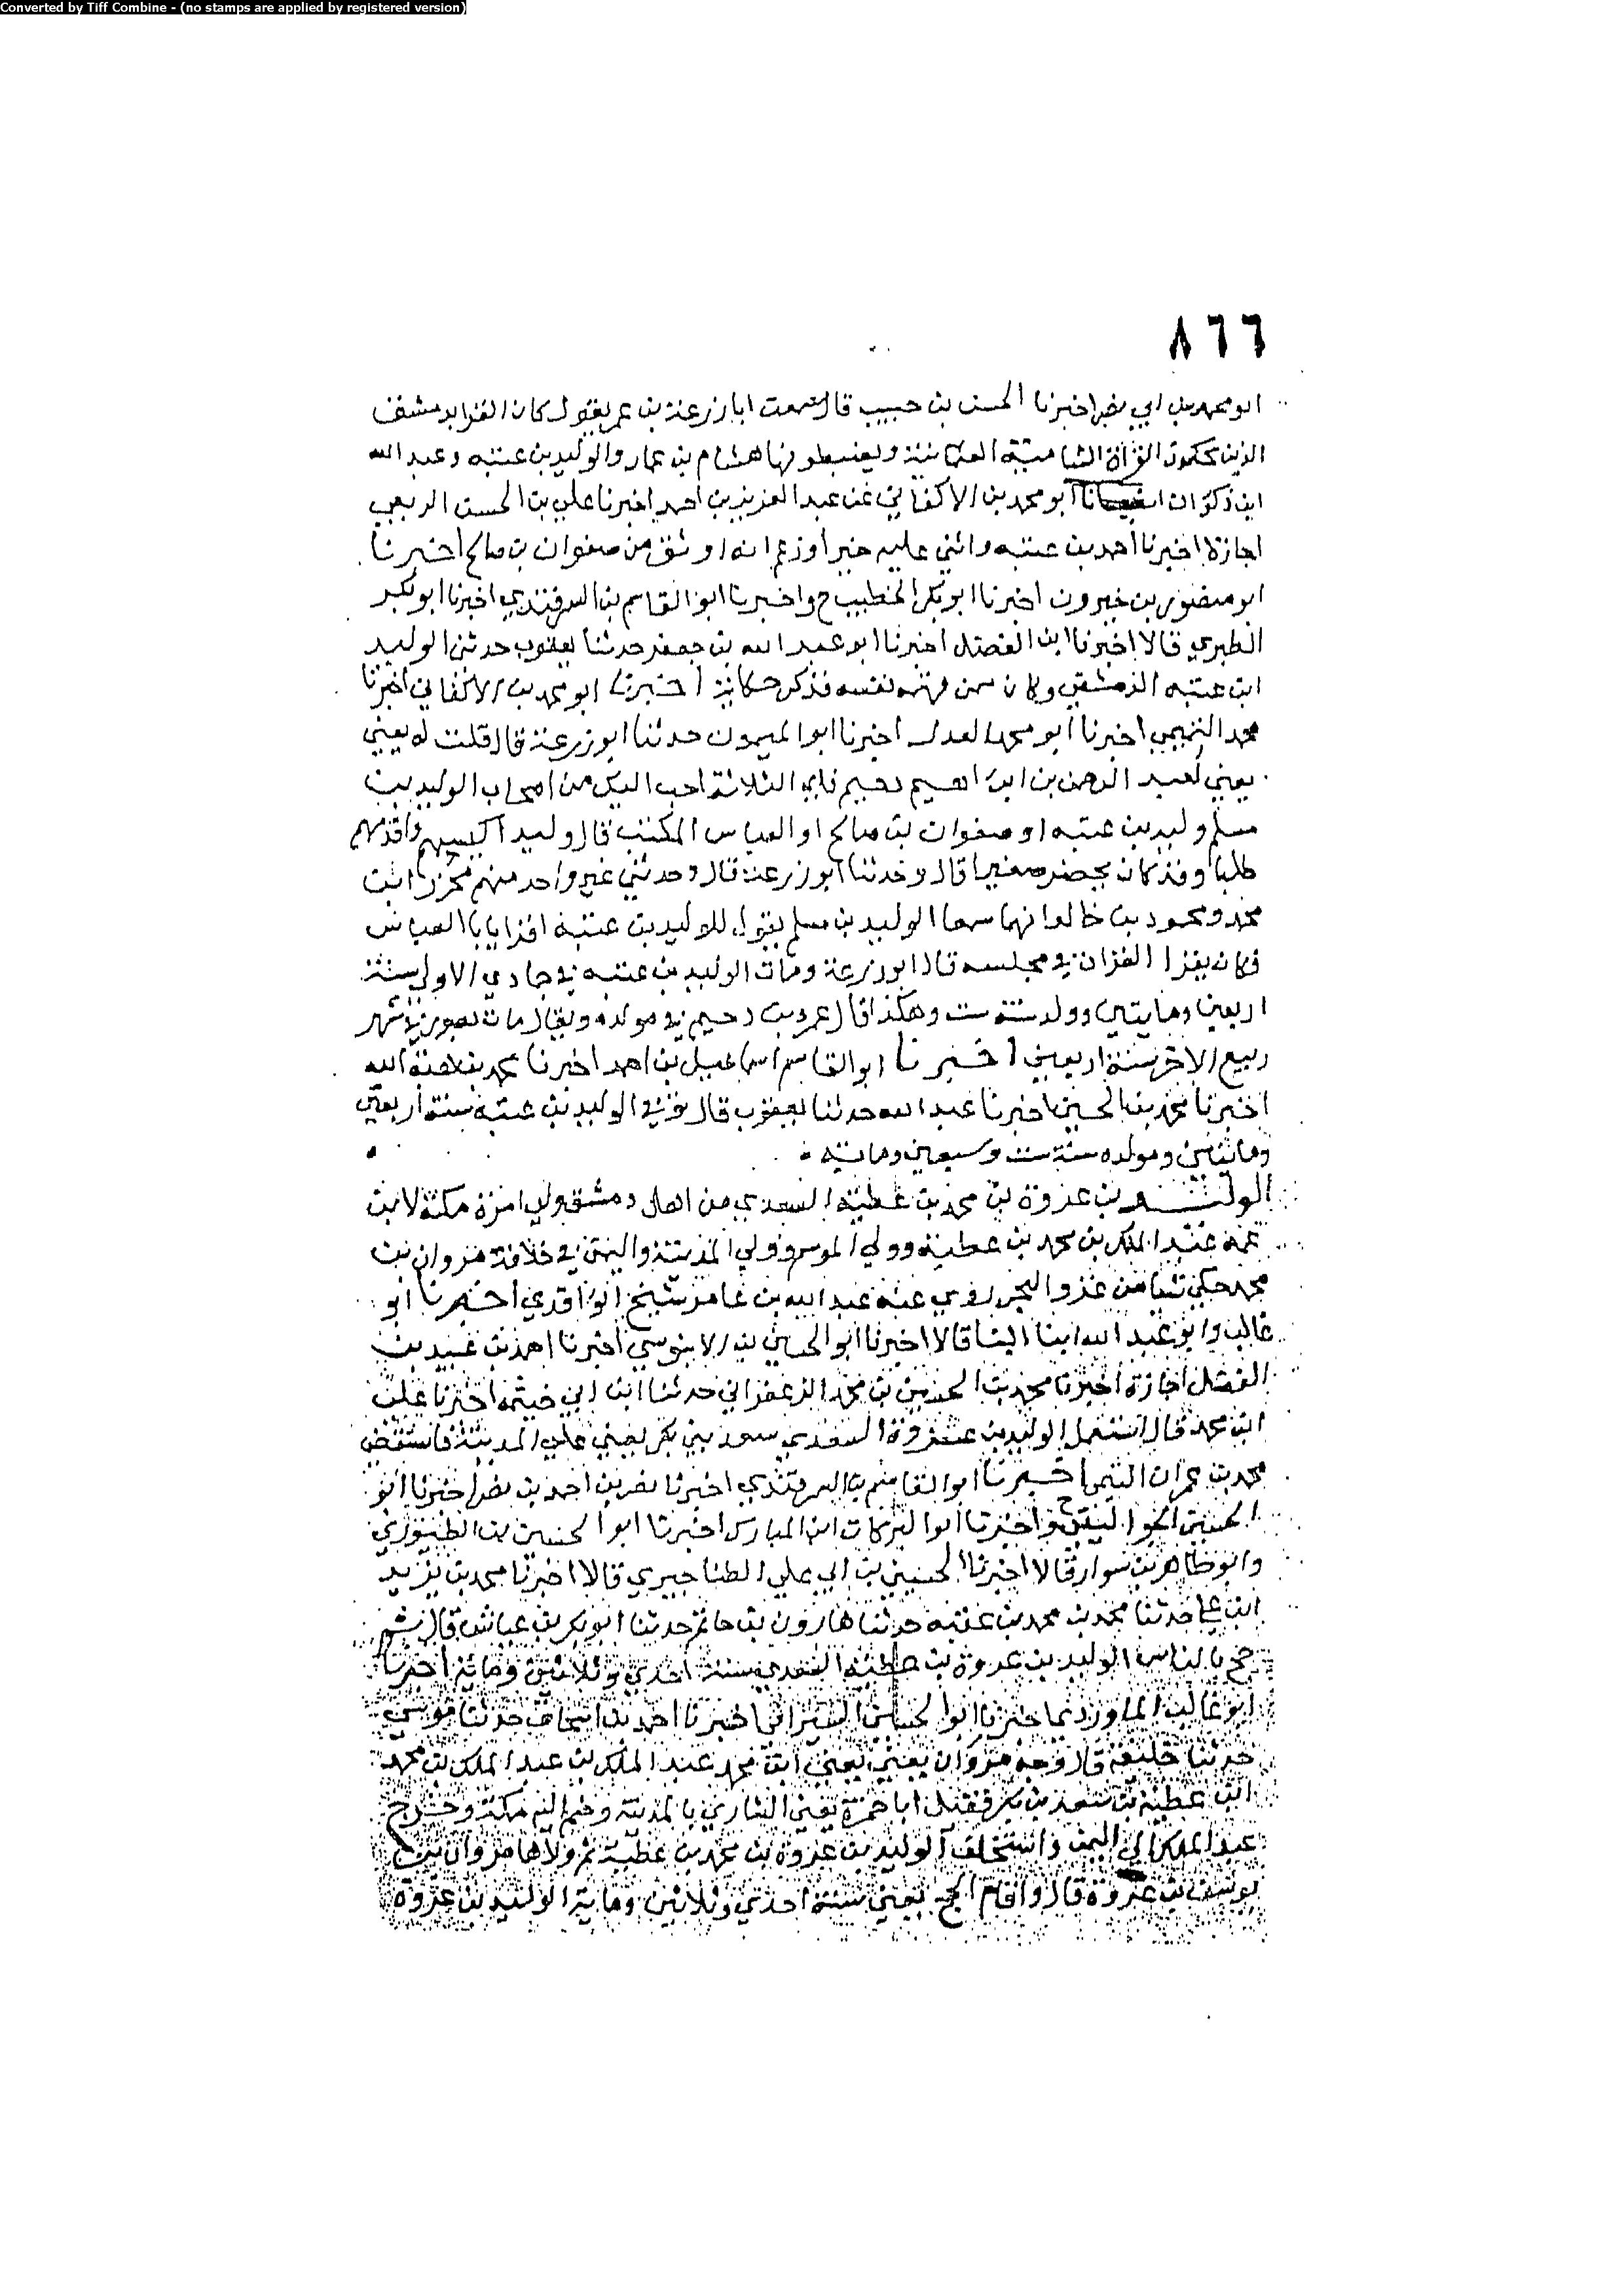 Converted by Tiff Combine - (no stamps are applied by registered version)
٨٦٦
ابو محمد بن ابي نصر اخبرنا الحسن بن حبيب قال سمعت ابا زرعة بن عمر يقول كان القرا بدمشق
الذين يحكمون القراة الشامية العثمانية ويضبطونها هشام بن عمار والوليد بن عتبه وعبد الله
ابن ذكوان ابو محمد بن الاكفاني عن عبد العزيز بن احمد اخبرنا علي بن الحسن الربعي
اجازة اخبرنا احمد بن عتبه واثني عليه خيرا وزعم انه اوثق من صفوان بن صالح اخبرنا
ابو منصور بن خيرون اخبرنا ابو بكر الخطيب ح واخبرنا ابو القاسم بن السمرقندي اخبرنا ابو بكر
الطبري قالا اخبرنا ابن الفضل اخبرنا ابو عبد الله بن جعفر حدثنا يعقوب حدثني الوليد
ابن عتبه الدمشقي وكان ممن تهمه نفسه فذكر حكاية اخبرنا ابو محمد بن الاكفاني اخبرنا
محمد التميمي اخبرنا ابو محمد العدل اخبرنا ابو الميمون حدثنا ابو زرعة قال قلت له يعني
يعني لعبد الرحمن بن ابراهيم دحيم فاي الثلاثة احب اليك من اصحاب الوليد بن
مسلم وليد بن عتبه او صفوان بن صالح او العباس المكتب قال وليد اكيسهم واقدمهم
طلبا وقد كان يحضر صغيرا قال وحدثنا ابو زرعة قال وحدثني غير واحد منهم محرز ابن
محمد ومحمود بن خالد انهما سمعا الوليد بن مسلم يقول للوليد بن عتبه اقرا يابا العباس
فكان يقرا القران في مجلسه قال ابو زرعة ومات الوليد بن عتبه في جمادي الاولي سنة
اربعين ومايتين وولد سنة ست وهكذا قال عمرو بن دحيم في مولده ويقال مات بصور في شهر
ربيع الاخر سنة اربعين اخبرنا ابو القاسم اسماعيل بن احمد اخبرنا محمد بن هبة الله
اخبرنا محمد بن الحسين اخبرنا عبد الله حدثنا يعقوب قال توفي الوليد بن عتبه سنة اربعين
ومايتين ومولده سنة ست وسبعين ومايه
الوليد بن عروة بن محمد بن عطية السعدي من اهل دمشق ولي امرة مكة لابن
عمه عبد الملك بن محمد بن عطية وولي الموسم وولي المدينة واليمن في خلافة مروان بن
محمد حكي شيا من غزو البحر روي عنه عبد الله بن عامر شيخ الواقدي اخبرنا ابو
غالب وابو عبد الله ابنا البنا قالا اخبرنا ابو الحسين بن الابنوسي اخبرنا احمد بن عبيد بن
الفضل اجازة اخبرنا محمد بن الحسين بن محمد الزعفراني حدثنا ابن ابي خيثمه اخبرنا علي
ابن محمد قال استعمل الوليد بن عروة السعدي سعد بني بكر يعني علي المدينة فاستقضي
محمد بن عمران التيمي اخبرنا ابو القاسم بن السمرقندي اخبرنا نصر بن احمد بن نصر اخبرنا ابو
الحسين الجواليقي ح واخبرنا ابو البركات ابن المبارك اخبرنا ابو الحسين بن الطيوري
وابو طاهر بن سوار قالا اخبرنا الحسين بن ابي علي الطناجيري قالا اخبرنا محمد بن يزيد
ابن علي حدثنا محمد بن محمد بن عقبه حدثنا هارون بن حاتم حدثنا ابو بكر بن عياش قال ثم
حج بالناس الوليد بن عروة بن عطية السعدي سنة احدي وثلاثين وماية اخبرنا
ابو غالب الماوردي اخبرنا ابو الحسن السيرافي اخبرنا احمد بن اسحاق حدثنا موسي
حدثنا خليفة قال وجه مروان يعني يعني ابن محمد عبد الملك بن عبد الملك بن محمد
ابن عطية بن سعد بن بكر فقتل ابا حمزة يعني الشاري بالمدينة وضم اليه مكة وخرج
عبد الملك الي اليمن واستخلف الوليد بن عروة بن محمد بن عطية ثم ولاها مروان
يوسف بن عروة قال واقام الحج يعني سنة احدي وثلاثين وماية الوليد بن عروة